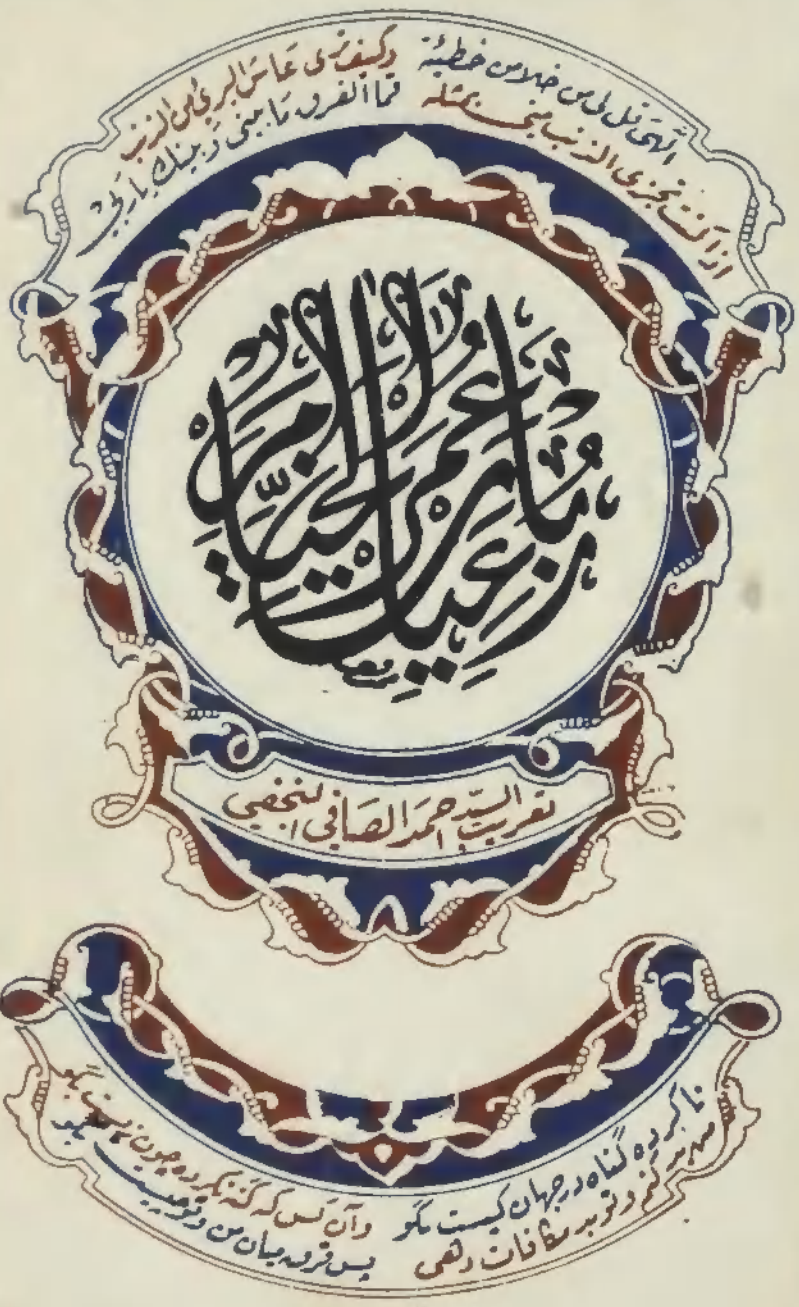 الهي قل لي من خلا من خطيئة وكيف ترى عاش البريء من الذنب
اذا كنت تجزي الذنب مني بمثله فما الفرق ما بيني وبينك يا ربي
رباعيات عمر الخيام
تعريب السيد احمد الصافي النجفي
ناكرده گناه در جهان كيست بگو وآن كس كه گنه نكرده چون زيست بگو
من بد كنم و تو بد مكافات دهى پس فرق ميان من و تو چيست بگو